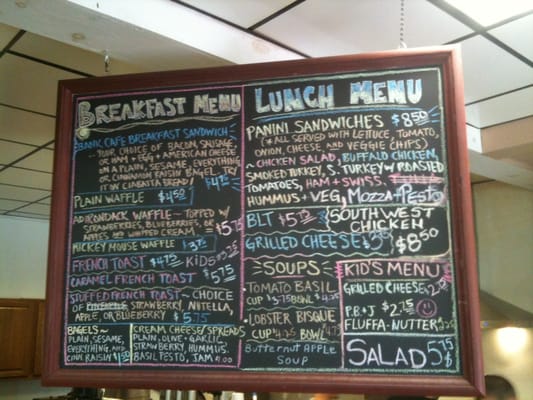 BREAKFAST MENU
BANK CAFE BREAKFAST SANDWICH
~ YOUR CHOICE OF BACON, SAUSAGE,
OR HAM + EGG + AMERICAN CHEESE
ON A PLAIN, SESAME, EVERYTHING
OR CINNAMON RAISIN BAGEL. TRY
IT ON CIABATTA BREAD!
PLAIN WAFFLE $4.50
ADIRONDACK WAFFLE ~ TOPPED W/
STRAWBERRIES, BLUEBERRIES, OR
APPLES AND WHIPPED CREAM $5.75
MICKEY MOUSE WAFFLE $3.75
FRENCH TOAST $4.75 KIDS $3.25
CARAMEL FRENCH TOAST $5.75
STUFFED FRENCH TOAST ~ CHOICE
OF STRAWBERRY, NUTELLA,
APPLE, OR BLUEBERRY $5.75
BAGELS~
PLAIN, SESAME,
EVERYTHING AND
CINN. RAISIN $1.50
CREAM CHEESE/SPREADS
PLAIN, OLIVE + GARLIC,
STRAWBERRY, HUMMUS,
BASIL PESTO, JAM $1.00
LUNCH MENU
PANINI SANDWICHES $8.50
(*ALL SERVED WITH LETTUCE, TOMATO,
ONION, CHEESE, AND VEGGIE CHIPS)
~ CHICKEN SALAD, BUFFALO CHICKEN,
SMOKED TURKEY, S. TURKEY W/ ROASTED
TOMATOES, HAM + SWISS,
HUMMUS + VEG, MOZZA + PESTO
BLT $5.75
SOUTHWEST
CHICKEN
$8.50
GRILLED CHEESE
~ SOUPS ~
TOMATO BASIL
CUP $3.75 BOWL $4.25
LOBSTER BISQUE
CUP $4.25 BOWL
Butternut Apple
Soup
KID'S MENU
GRILLED CHEESE
P.B + J $2.75
FLUFFA-NUTTER
SALAD 5.75